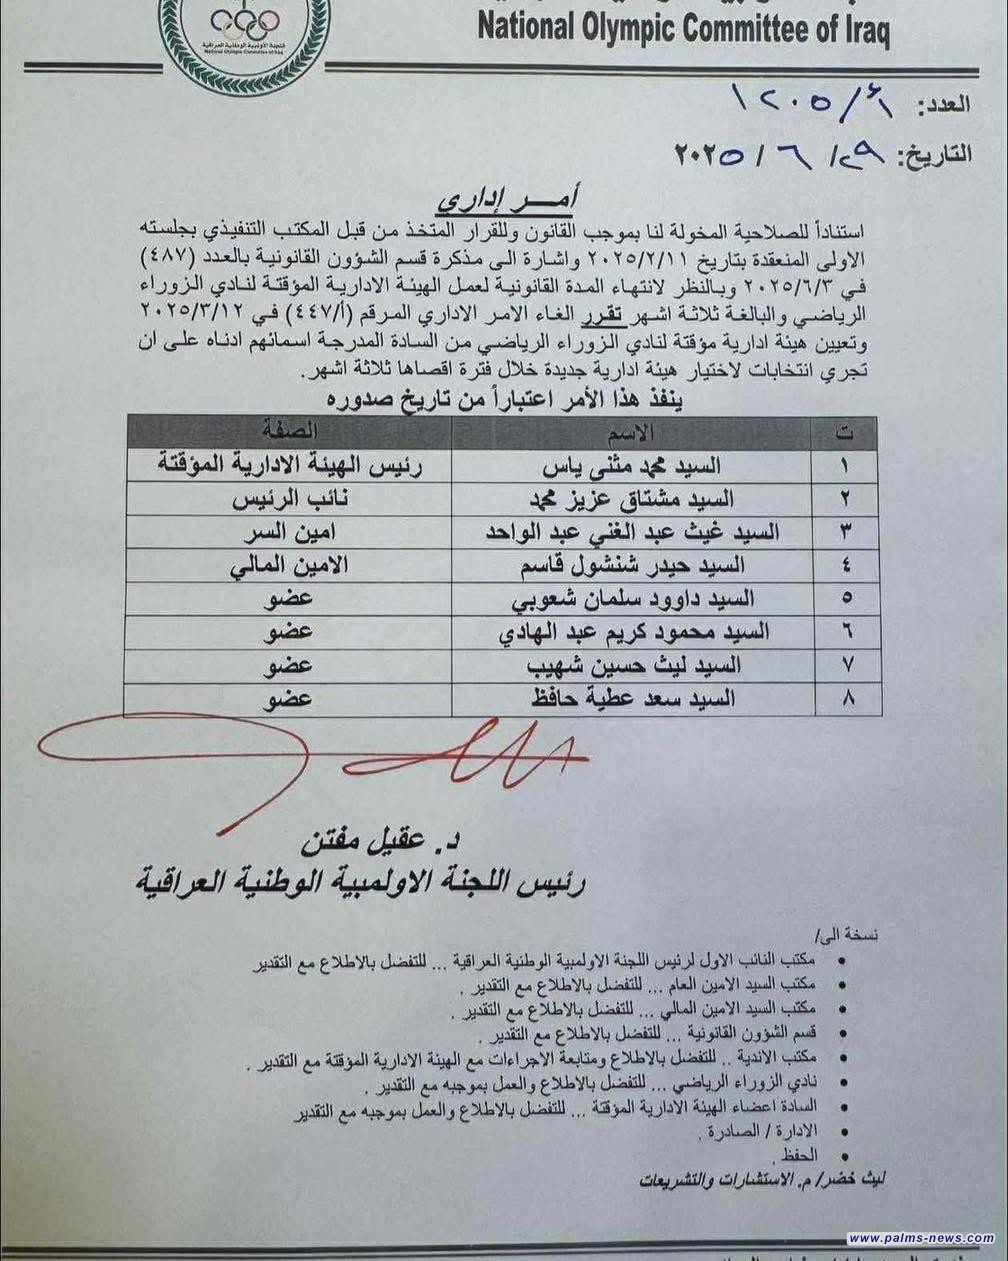 National Olympic Committee of Iraq
اللجنة الأولمبية الوطنية العراقية
National Olympic Committee of Iraq
العدد: أ/ ١٢٠٥
التاريخ: ٢٩/ ٦ / ٢٠٢٥
أمـــر إداري
استناداً للصلاحية المخولة لنا بموجب القانون وللقرار المتخذ من قبل المكتب التنفيذي بجلسته
الاولى المنعقدة بتاريخ ٢٠٢٥/٢/١١ واشارة الى مذكرة قسم الشؤون القانونية بالعدد (٤٨٧)
في ٢٠٢٥/٦/٣ وبالنظر لانتهاء المدة القانونية لعمل الهيئة الادارية المؤقتة لنادي الزوراء
الرياضي والبالغة ثلاثة اشهر تقرر الغاء الامر الاداري المرقم (أ/٤٤٧) في ٢٠٢٥/٣/١٢
وتعيين هيئة ادارية مؤقتة لنادي الزوراء الرياضي من السادة المدرجة اسمائهم ادناه على ان
تجري انتخابات لاختيار هيئة ادارية جديدة خلال فترة اقصاها ثلاثة اشهر.
ينفذ هذا الأمر اعتباراً من تاريخ صدوره
ت الاسم الصفة
١ السيد محمد مثنى ياس رئيس الهيئة الادارية المؤقتة
٢ السيد مشتاق عزيز محمد نائب الرئيس
٣ السيد غيث عبد الغني عبد الواحد امين السر
٤ السيد حيدر شنشول قاسم الامين المالي
٥ السيد داوود سلمان شعوبي عضو
٦ السيد محمود كريم عبد الهادي عضو
٧ السيد ليث حسين شهيب عضو
٨ السيد سعد عطية حافظ عضو
د. عقيل مفتن
رئيس اللجنة الاولمبية الوطنية العراقية
نسخة الى/
• مكتب النائب الاول لرئيس اللجنة الاولمبية الوطنية العراقية ... للتفضل بالاطلاع مع التقدير
• مكتب السيد الامين العام ... للتفضل بالاطلاع مع التقدير .
• مكتب السيد الامين المالي ... للتفضل بالاطلاع مع التقدير .
• قسم الشؤون القانونية ... للتفضل بالاطلاع مع التقدير .
• مكتب الاندية .. للتفضل بالاطلاع ومتابعة الاجراءات مع الهيئة الادارية المؤقتة مع التقدير .
• نادي الزوراء الرياضي ... للتفضل بالاطلاع والعمل بموجبه مع التقدير .
• السادة اعضاء الهيئة الادارية المؤقتة ... للتفضل بالاطلاع والعمل بموجبه مع التقدير
• الادارة / الصادرة .
• الحفظ .
ليث خضر/ م. الاستشارات والتشريعات
www.palms-news.com